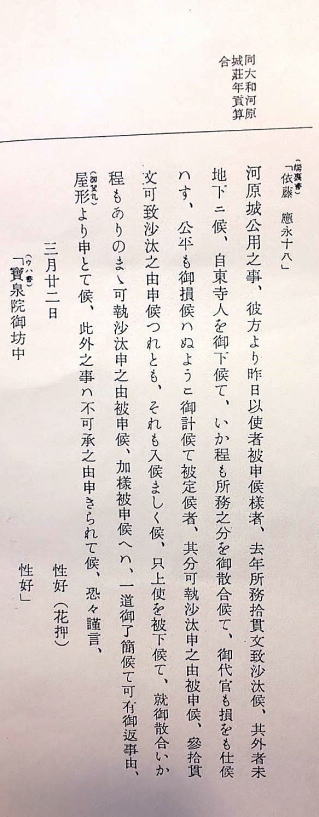 同大和河原
城莊年貢算
合
(端裏書)
「依藤　應永十八」
河原城公用之事、彼方より昨日以使者被申候樣者、去年所務拾貫文致沙汰候、其外者未
地下ニ候、自東寺人を御下候て、いか程も所務之分を御散合候て、御代官も損をも仕候
ハす、公平も御損候ハぬようニ御計候て被定候者、其分可執沙汰申之由被申候、參拾貫
文可致沙汰之由申候つれとも、それも入候ましく候、只上使を被下候て、就御散合いか
程もありのまゝ可執沙汰申之由被申候、加樣被申候へハ、一道御了簡候て可有御返事由、
屋形より申とて候、此外之事ハ不可承之由申きられて候、恐々謹言、
三月廿二日
性好（花押）
(ウハ書)
「寶泉院御坊中
性好」